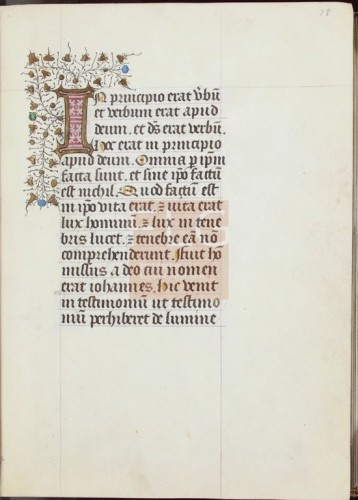 28
In principio erat v̄bū
et verbum erat apud
deum. et dē̄s erat verbū.
Hoc erat in principio
apud deum. Omnia p̄ ip̄m
facta sunt. et sine ip̄o factū
est nichil. Quod factū est
in ip̄o vita erat. ⁊ vita erat
lux hominū. ⁊ lux in tene
bris lucet. ⁊ tenebre eā nō
comprehenderunt. Fuit hō
missus a deo cui nomen
erat iohannes. hic venit
in testimoniū ut testimo
niū perhiberet de lumine